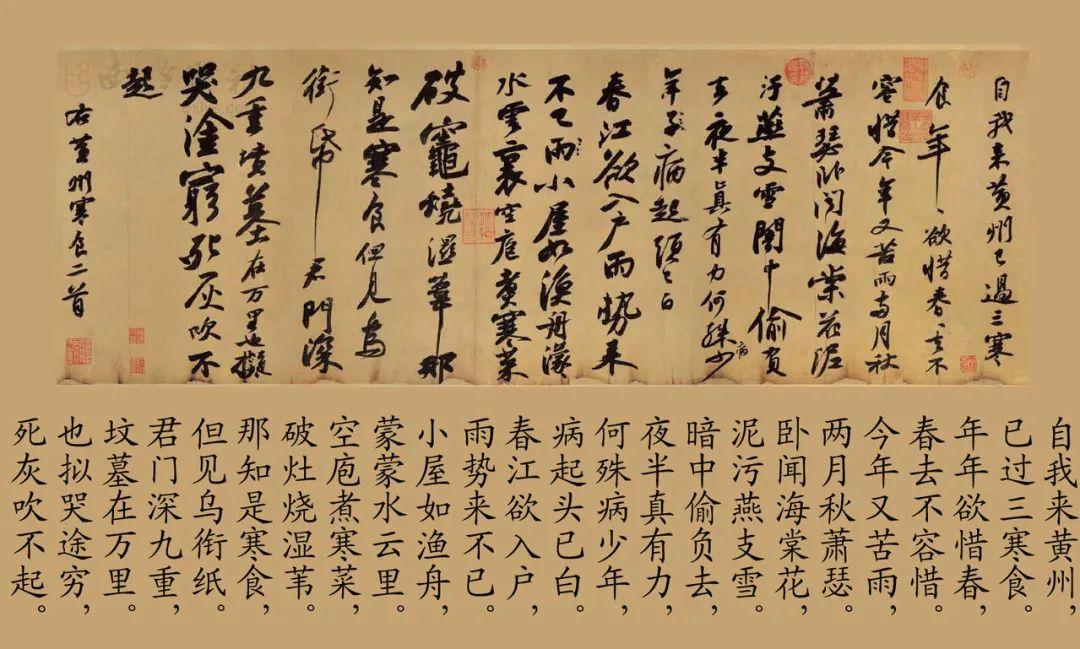 自我来黄州已過三寒
食年〻欲惜春〻去不
容惜今年又苦雨兩月秋
蕭瑟卧聞海棠花泥
汙燕支雪闇中偷負
去夜半真有力何殊病少
年子病起頭已白
春江欲入户雨勢来
不已雨小屋如漁舟濛〻
水雲裏空庖煑寒菜
破竈燒濕葦那
知是寒食但見烏
銜帋君門深
九重墳墓在万里也擬
哭塗窮死灰吹不
起
右黄州寒食二首
自我来黄州，
已过三寒食。
年年欲惜春，
春去不容惜。
今年又苦雨，
两月秋萧瑟。
卧闻海棠花，
泥污燕支雪。
暗中偷负去，
夜半真有力，
何殊病少年，
病起头已白。
春江欲入户，
雨势来不已。
小屋如渔舟，
蒙蒙水云里。
空庖煮寒菜，
破灶烧湿苇。
那知是寒食，
但见乌衔纸。
君门深九重，
坟墓在万里。
也拟哭途穷，
死灰吹不起。